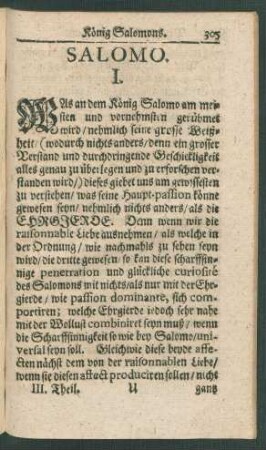 König Salomons. 305
SALOMO.
I.
WAs an dem König Salomo am mei-
sten und vornehmsten gerühmet
wird / nehmlich seine grosse Weiß-
heit / (wodurch nichts anders / denn ein grosser
Verstand und durchdringende Geschickligkeit
alles genau zu überlegen und zu erforschen ver-
standen wird /) dieses giebet uns am gewissesten
zu verstehen / was seine Haupt-passion könne
gewesen seyn / nehmlich nichts anders / als die
EHRGIERDE. Denn wenn wir die
raisonnable Liebe ausnehmen / als welche in
der Ordnung / wie nachmahls zu sehen seyn
wird / die dritte gewesen / so kan diese scharffsin-
nige penetration und glückliche curiosité
des Salomons wit nichts / als nur mit der Ehr-
gierde / wie passion dominante, sich com-
portiren; welche Ehrgierde jedoch sehr nahe
mit der Wollust combiniret seyn muß / wenn
die Scharffsinnigkeit so wie bey Salomo / uni-
versal seyn soll. Gleichwie diese beyde affe-
cten nächst dem von der raisonnablen Liebe /
wenn sie diesen affect produciren sollen / nicht
III. Theil. U gantz